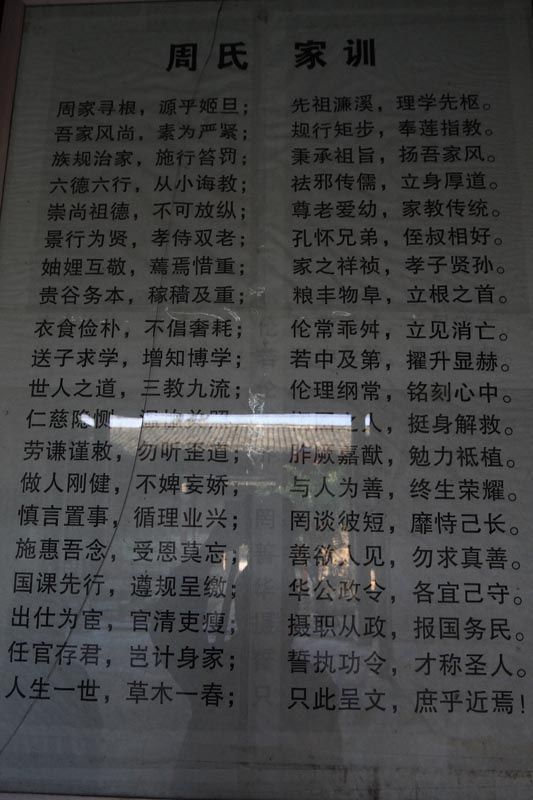 周氏 家训
周家寻根，源乎姬旦； 先祖濂溪，理学先枢。
吾家风尚，素为严紧； 规行矩步，奉莲指教。
族规治家，施行笞罚； 秉承祖旨，扬吾家风。
六德六行，从小诲教； 祛邪传儒，立身厚道。
崇尚祖德，不可放纵； 尊老爱幼，家教传统。
景行为贤，孝侍双老； 孔怀兄弟，侄叔相好。
妯娌互敬，蔫焉惜重； 家之祥祯，孝子贤孙。
贵谷务本，稼穑及重； 粮丰物阜，立根之首。
衣食俭朴，不倡奢耗； 伦常乖舛，立见消亡。
送子求学，增知博学； 若中及第，擢升显赫。
世人之道，三教九流； 伦理纲常，铭刻心中。
仁慈隐恻， 之人，挺身解救。
劳谦谨敕，勿听歪道； 胙厥嘉猷，勉力祗植。
做人刚健，不婢妄娇； 与人为善，终生荣耀。
慎言置事，循理业兴； 罔谈彼短，靡恃己长。
施惠吾念，受恩莫忘； 善欲人见，勿求真善。
国课先行，遵规呈缴； 华公政令，各宜己守。
出仕为宦，官清吏瘦； 摄职从政，报国务民。
任官存君，岂计身家； 誓执功令，才称圣人。
人生一世，草木一春； 只此呈文，庶乎近焉！